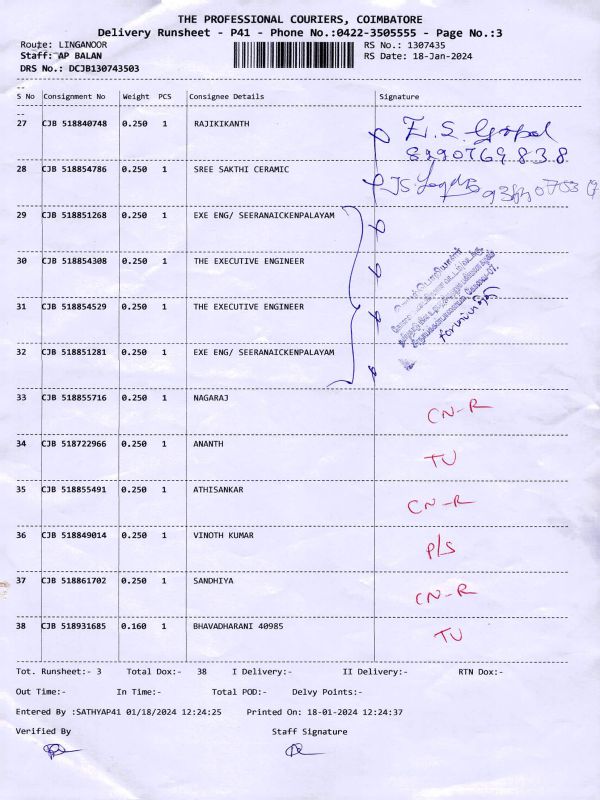 THE PROFESSIONAL COURIERS, COIMBATORE
Delivery Runsheet - P41 - Phone No.:0422-3505555 - Page No.:3
Route: LINGANOOR RS No.: 1307435
Staff: AP BALAN RS Date: 18-Jan-2024
DRS No.: DCJB130743503
S No Consignment No Weight PCS Consignee Details Signature
27 CJB 518840748 0.250 1 RAJIKIKANTH
28 CJB 518854786 0.250 1 SREE SAKTHI CERAMIC
29 CJB 518851268 0.250 1 EXE ENG/ SEERANAICKENPALAYAM
30 CJB 518854308 0.250 1 THE EXECUTIVE ENGINEER
31 CJB 518854529 0.250 1 THE EXECUTIVE ENGINEER
32 CJB 518851281 0.250 1 EXE ENG/ SEERANAICKENPALAYAM
33 CJB 518855716 0.250 1 NAGARAJ CN-R
34 CJB 518722966 0.250 1 ANANTH TU
35 CJB 518855491 0.250 1 ATHISANKAR CN-R
36 CJB 518849014 0.250 1 VINOTH KUMAR P/S
37 CJB 518861702 0.250 1 SANDHIYA CN-R
38 CJB 518931685 0.160 1 BHAVADHARANI 40985 TU
Tot. Runsheet:- 3 Total Dox:- 38 I Delivery:- II Delivery:- RTN Dox:-
Out Time:- In Time:- Total POD:- Delvy Points:-
Entered By :SATHYAP41 01/18/2024 12:24:25 Printed On: 18-01-2024 12:24:37
Verified By Staff Signature